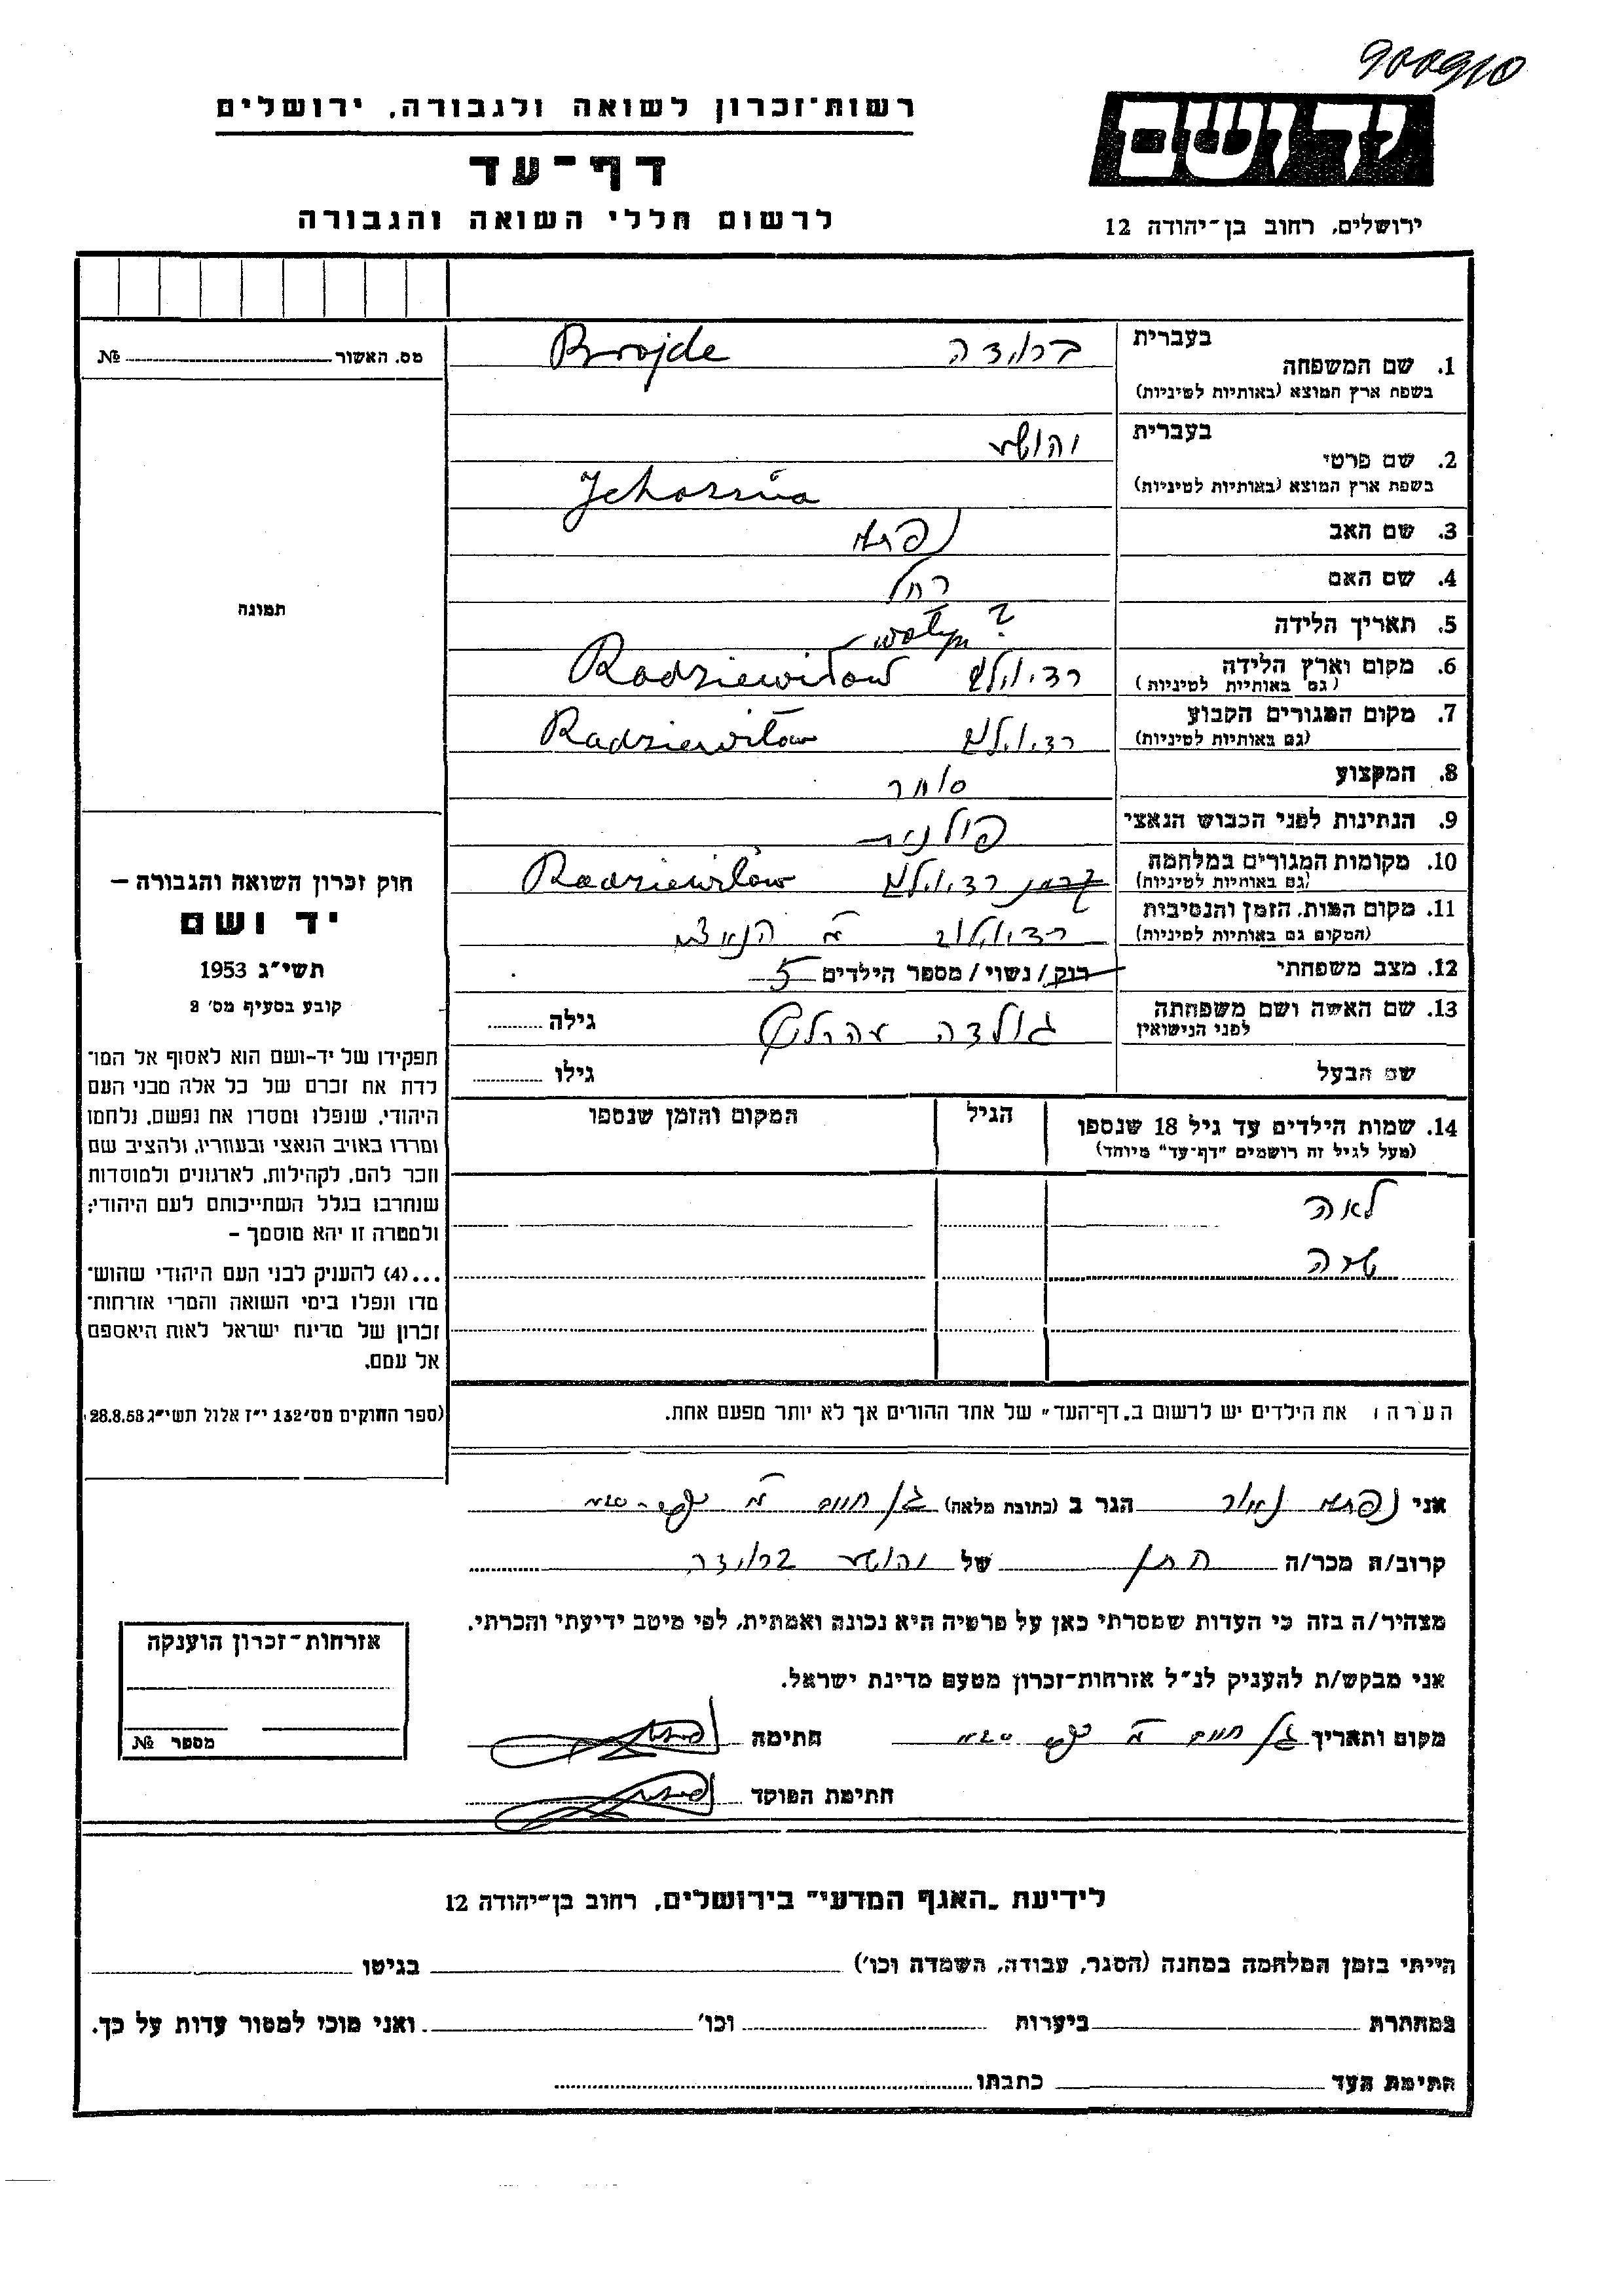 900910
רשות־זכרון לשואה ולגבורה, ירושלים
דף־עד
לרשום חללי השואה והגבורה
ידושם
ירושלים, רחוב בן־יהודה 12
מס. האשור № 
תמונה
חוק זכרון השואה והגבורה –
יד ושם
תשי״ג 1953
קובע בסעיף מס׳ 2
תפקידו של יד-ושם הוא לאסוף אל המו־
לדת את זכרם של כל אלה מבני העם
היהודי, שנפלו ומסרו את נפשם, נלחמו
ומרדו באויב הנאצי ובעוזריו, ולהציב שם
וזכר להם, לקהילות, לארגונים ולמוסדות
שנחרבו בגלל השתייכותם לעם היהודי;
ולמטרה זו יהא מוסמך –
...(4) להעניק לבני העם היהודי שהוש־
מדו ונפלו בימי השואה והמרי אזרחות־
זכרון של מדינת ישראל לאות היאספם
אל עמם.
(ספר החוקים מס׳ 132 י״ז אלול תשי״ג 28.8.53)
1. שם המשפחה בעברית ברוידה Brojde
(בשפת ארץ המוצא (באותיות לטיניות
2. שם פרטי בעברית יהושע
(בשפת ארץ המוצא (באותיות לטיניות Jehoszua
3. שם האב
4. שם האם רחל
5. תאריך הלידה ?
6. מקום וארץ הלידה רדזיוילוב Radziewiłow Wołyn
(גם באותיות לטיניות)
7. מקום המגורים הקבוע רדזיוילוב Radziewiłow
(גם באותיות לטיניות)
8. המקצוע סוחר
9. הנתינות לפני הכבוש הנאצי פולנית
10. מקומות המגורים במלחמה רדזיוילוב Radziewiłow
(גם באותיות לטיניות)
11. מקום המות, הזמן והנסיבות רדזיוילוב ע״י הנאצים
(המקום גם באותיות לטיניות)
12. מצב משפחתי רוק/נשוי/מספר הילדים 5
13. שם האשה ושם משפחתה גולדה גילה
לפני הנישואין
שם הבעל גילו
14. שמות הילדים עד גיל 18 שנספו הגיל המקום והזמן שנספו
(מעל לגיל זה רושמים "דף־עד" מיוחד)
לאה
הערה: את הילדים יש לרשום ב„דף־העד" של אחד ההורים אך לא יותר מפעם אחת.
אני נפתלי הגר ב (כתובת מלאה) גן חיים
קרוב/ה מכר/ה חתן של יהושע ברוידה
מצהיר/ה בזה כי העדות שמסרתי כאן על פרטיה היא נכונה ואמתית, לפי מיטב ידיעתי והכרתי.
אני מבקש/ת להעניק לנ״ל אזרחות־זכרון מטעם מדינת ישראל.
מקום ותאריך גן חיים חתימה
חתימת הפוקד
אזרחות־זכרון הוענקה
מספר №
לידיעת „האגף המדעי" בירושלים, רחוב בן־יהודה 12
הייתי בזמן המלחמה במחנה (הסגר, עבודה, השמדה וכו׳) בגיטו
במחתרת ביערות וכו׳ ואני מוכן למסור עדות על כך.
חתימת העד כתבתו